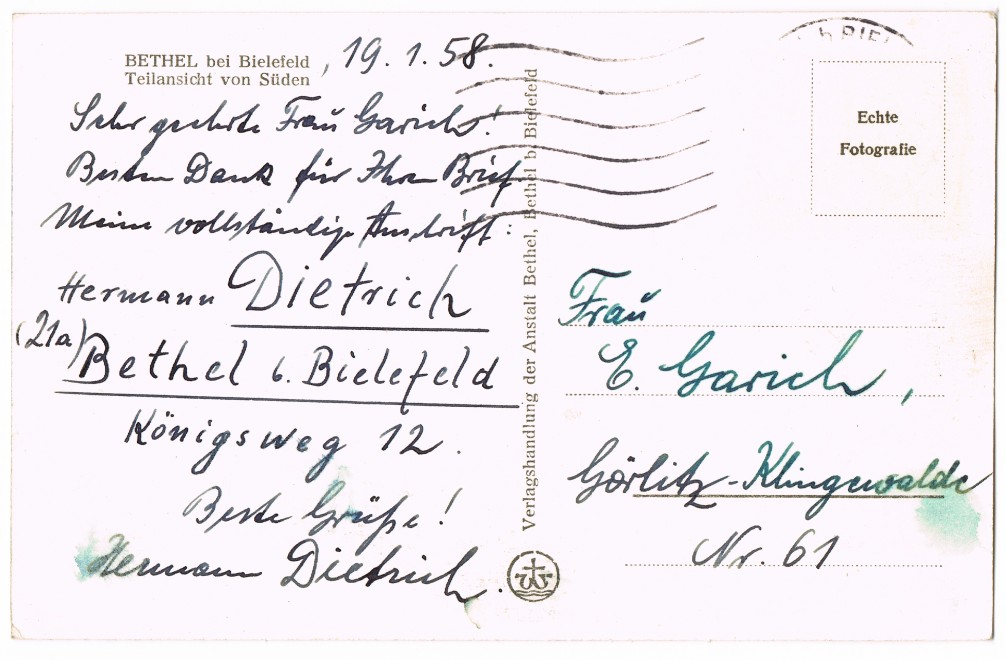 BETHEL bei Bielefeld
Teilansicht von Süden
, 19. 1. 58.
Sehr geehrte Frau Garich!
Besten Dank für Ihren Brief.
Meine vollständige Anschrift:
Hermann Dietrich
(21a) Bethel b. Bielefeld
Königsweg 12.
Beste Grüße!
Hermann Dietrich.
Verlagshandlung der Anstalt Bethel, Bethel b. Bielefeld
Echte
Fotografie
Frau
E. Garich,
Görlitz-Klingewalde
Nr. 61